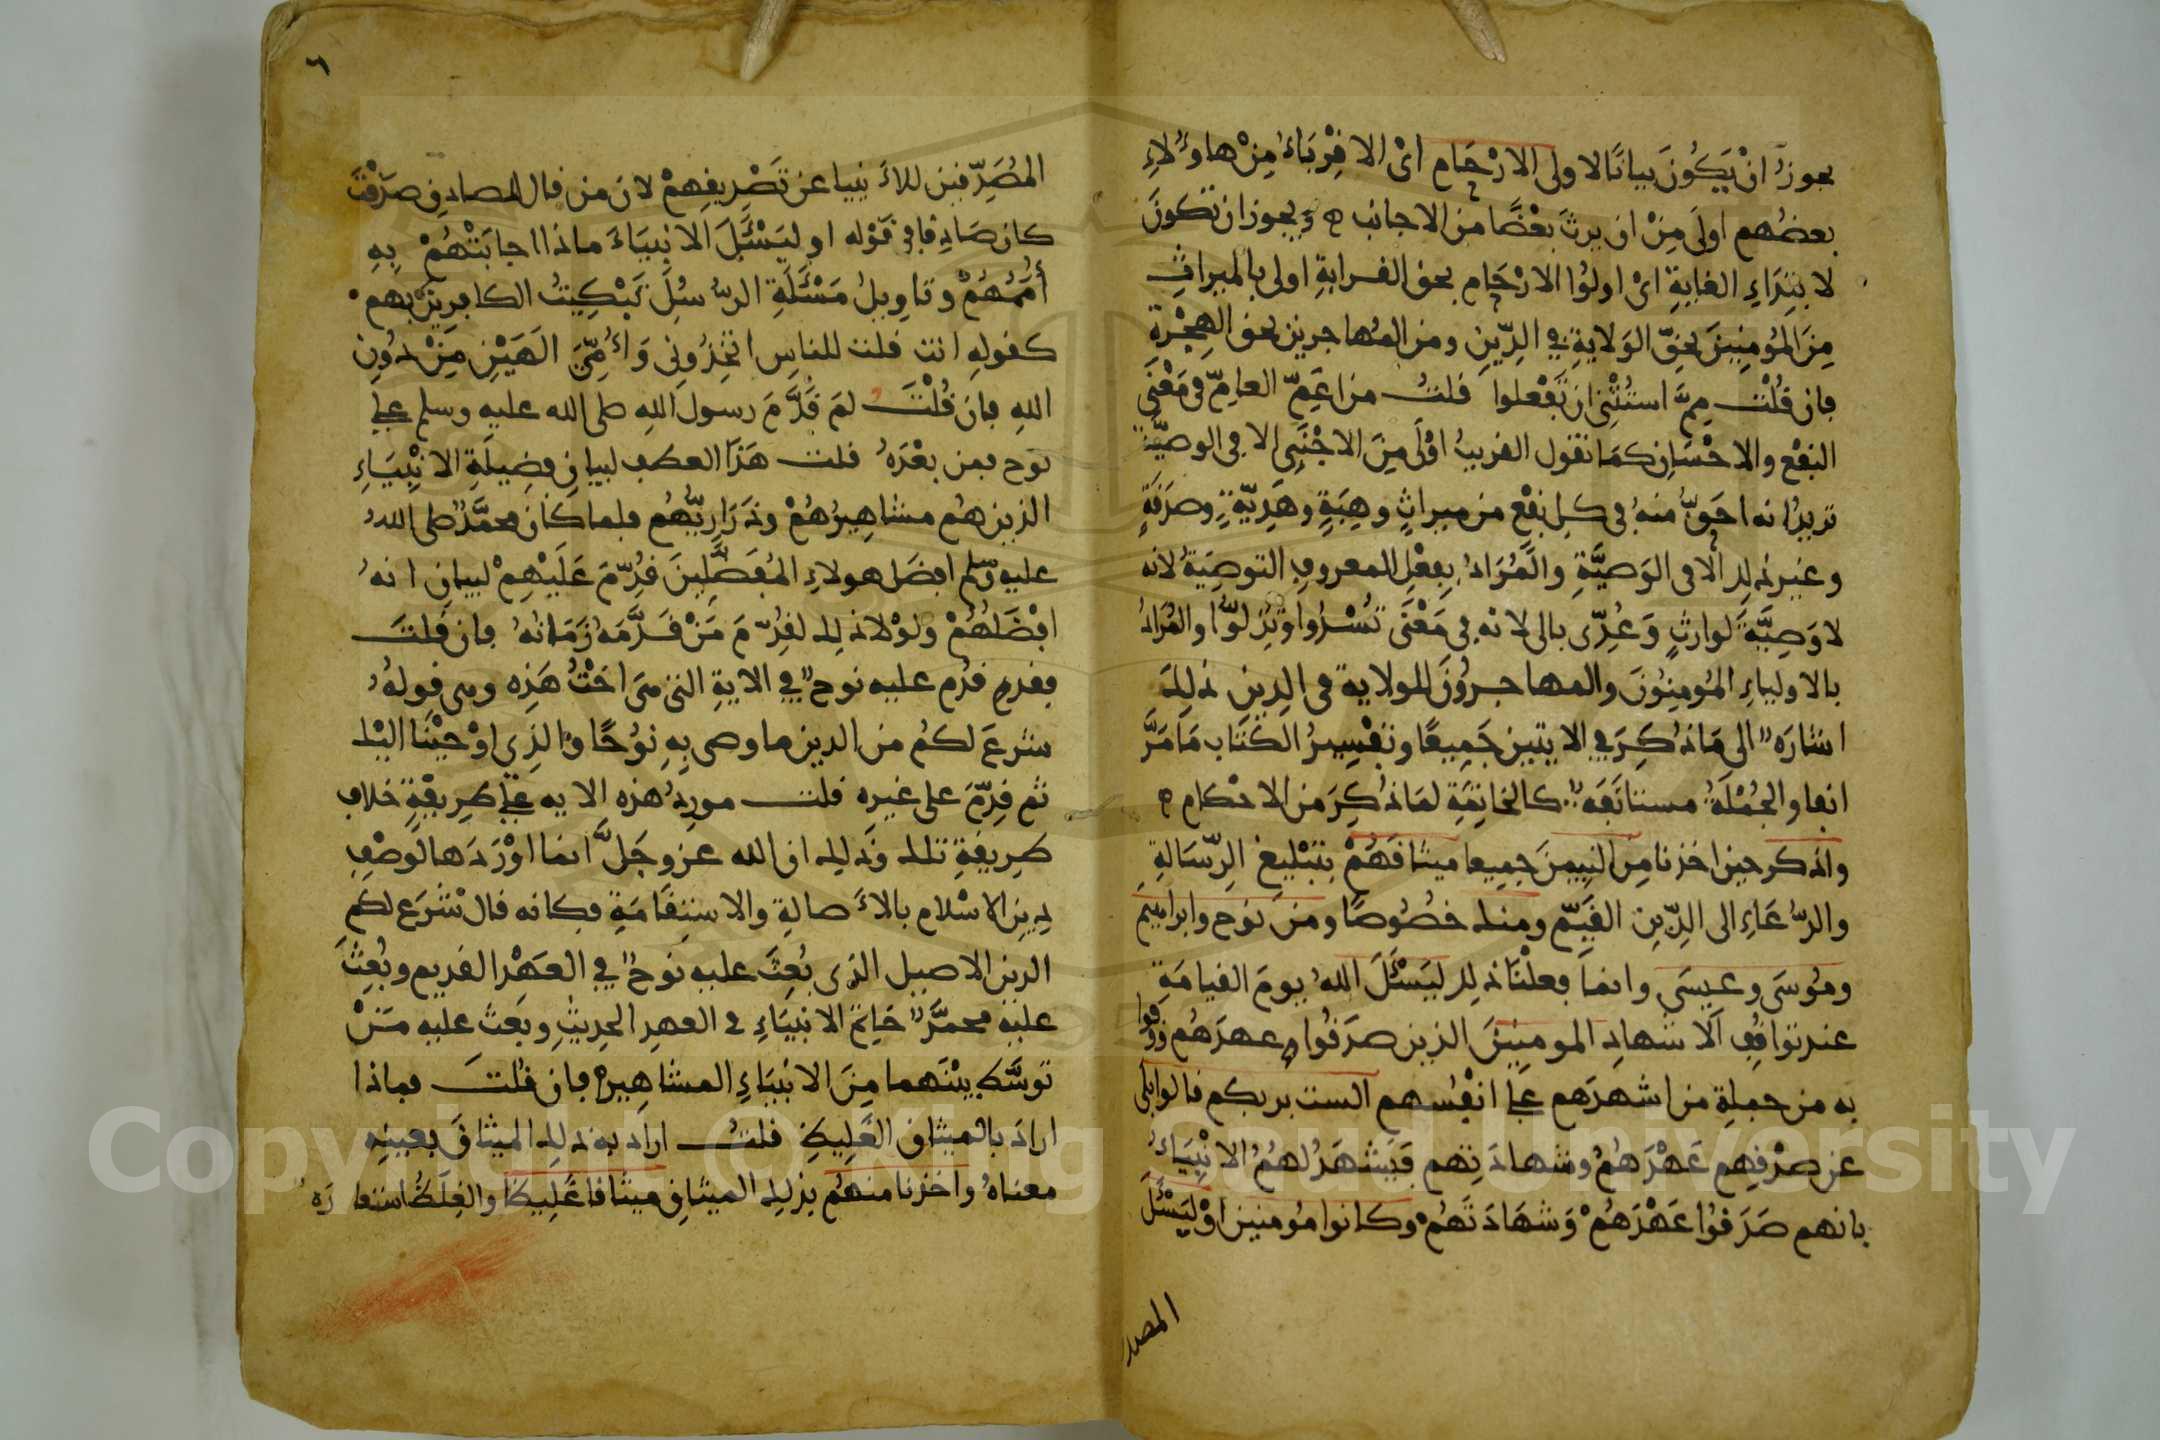 يجوز أنْ يَكُونَ بيانًا لاولى الارْحَام اىْ الاقْرِبَاءُ مِنْ هاوُلاءِ
بعضُهم اولَى مِنْ ان يرثَ بَعْضًا من الاجانب ويجوز ان تكونَ
لابتِدَاءِ الغايةِ اىْ اولوُا الارْحَام بحق القرابةِ اولى بالميراثِ
مِنَ المُومِنِينَ بحَقِّ الوَلايةِ في الدِّينِ ومن المُهاجرين بحق الهِجْرَةِ
فان قُلْتَ مِمَّ استُثْنِىَ ان تَفْعلوا قلتُ من اعَمِّ العامِّ في مَعْنَى
النفْعِ والاحْسَانِ كمَا تقول القريبُ اوْلَى مِنَ الاجْنَبِى الا في الوصيَّةِ
تريدُ انه احَقُّ منهُ في كل نفْعٍ من ميراثٍ وهِبَةٍ وهَدِيّةٍ وصدَقَةٍ
وغير ذلك الا في الوَصيَّةِ والمُرَادُ بفِعْلِ المعروفِ التوصِيَةُ لانه
لا وَصِيَّةَ لوارثٍ وَعُدِّى بالى لانه في مَعْنَى تُسْدُوا وتُزِلّوُا والمُرَادُ
بالاولياءِ المُومِنُونَ والمهاجرُونَ للولاية في الدِين ذلِكَ
اشارَة الى مَا ذُكِرَ في الايتين جَمِيعًا وتفْسِيرُ الكتَاب مَا مَرَّ
انفا والجُمْلَةُ مستانَفَة كالخاتِمَةِ لمَا ذُكِرَ من الاحْكام
واذكر حين اخذنا مِن النبِيينَ جميعا ميثاقَهُمْ بتَبْليغِ الرِّسَالةِ
والدُّعَاءِ الى الدِّينِ القَيِّم ومنك خصُوصًا ومن نوح وابراهيم
ومُوسَى وعيسَى وانما فعلْنَا ذلك ليَسْئَلَ اللهُ يومَ القيامَةِ
عند تواقُفِ الاشهادِ المومنِينَ الذين صدَقُوا عهدَهُم ووفوا
به من جملةِ من اشهدَهم على انفُسهم الست بربكم قالوا بلى
عن صدْقِهم عَهْدَهُمُ وشهادَتِهم فيَشهَدُ لهُمُ الانبِيَاءُ
بانهم صَدَقوُا عَهْدَهُمْ وَشهَادَتَهُمْ وكانوا مُومنين اوْ ليَسْئَلَ
المصد
٦
المُصَدِّقين للاَنبيا عن تَصْدِيقِهِمْ لان من قال للصادِق صدَقْتَ
كان صَادِقا في قوْله او ليَسْئَلَ الانبيَاءَ ماذا اجابَتْهُمْ بِهِ
أُمَمُهُمْ وتاوِيلُ مَسْئَلَةِ الرُّسُلِ تَبْكِيتُ الكافِرِينَ بهمْ
كقولهِ انت قلت للناسِ اتخِذُونِى وَاُمِّىَ الَهَيْنِ مِنْ دُونِ
اللهِ فان قُلْتَ لمَ قَدَّمَ رسول اللهِ صلى الله عليه وسلم على
نوح فمن بعْدَهُ قلت هَذَا العطف لبيان فضِيلَةِ الانْبِيَاءِ
الذين هُم مشاهِيرُهُمْ وذَرَارِيُّهُم فلما كَانَ محمَّدٌ صلى اللهُ
عليه وسلم افضَل هولاءِ المُفَضَّلِينَ قُدِّمَ عَلَيْهِمْ لبيان انهُ
افْضَلُهُمْ ولوْلا ذلك لقُدِّمَ مَنْ قدَّمَهُ زَمَانُهُ فان قلتَ
فقد قُدِم عليه نوح في الايةِ التى هى اخْتُ هَذِه وهى قولهُ
شرعَ لكمُ من الدين ما وصى بهِ نوُحًا والذِى اوْحَيْنَا اليْك
ثم قُدِّمَ على غيره قلت موردُ هذه الايه على طريقَةٍ خلافِ
طريقةِ تلك وذلك ان الله عز وجَلَّ انما اوْرَدَها لوَصْفِ
دِينِ الاسْلام بالاَصالةِ والاستِقَامَةِ فكانه قال شَرَع لكم
الدين الاصيل الذى بُعِثَ عليه نوح في العَهْدِ القديم وبُعِثَ
عليه محمَّد خَاتِم الانبيَاءِ في العهدِ الحديثِ وبعثَ عليه مَنْ
توسَّط بيْنَهما مِنَ الانبِيَاءِ المشاهيرِ فان قُلتَ فماذا
ارادَ بالميثاق الغَلِيظِ قلتُ ارادَ به ذلك الميثاقَ بعينِهِ
معناهُ واخذنا منهُم بذلك الميثاقِ ميثاقا غَليظا والغِلَظُ استعارَة
Copyright © King Saud University